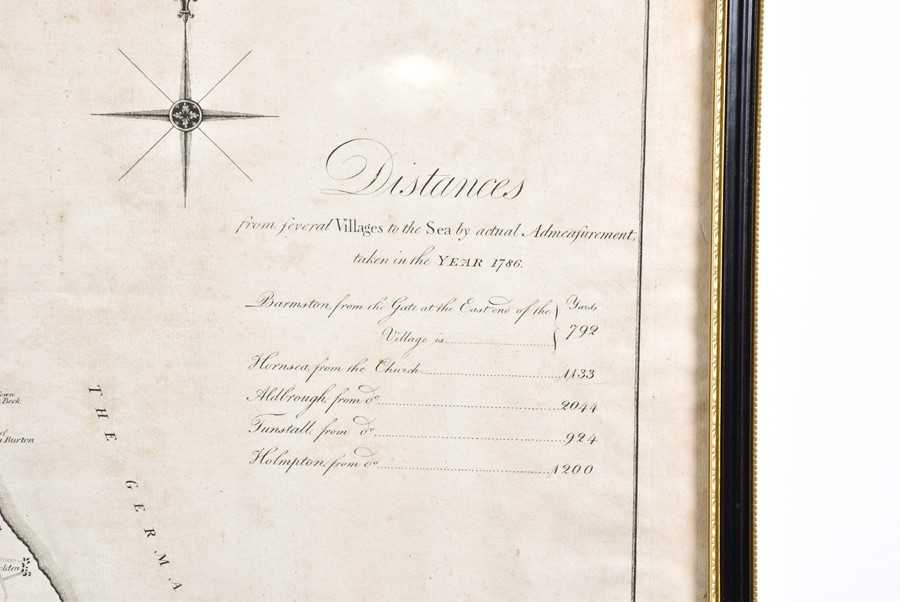 Distances
from ſeveral Villages to the Sea by actual Admeaſurement,
taken in the YEAR 1786.
Barmston, from the Gate at the East end of the } Yards
Village is........................ 792
Hornsea, from the Church........................ 1133
Aldbrough, from do........................ 2044
Tunstall, from do........................ 924
Holmpton, from do........................ 1200
Beck
Burton
THE GERMA